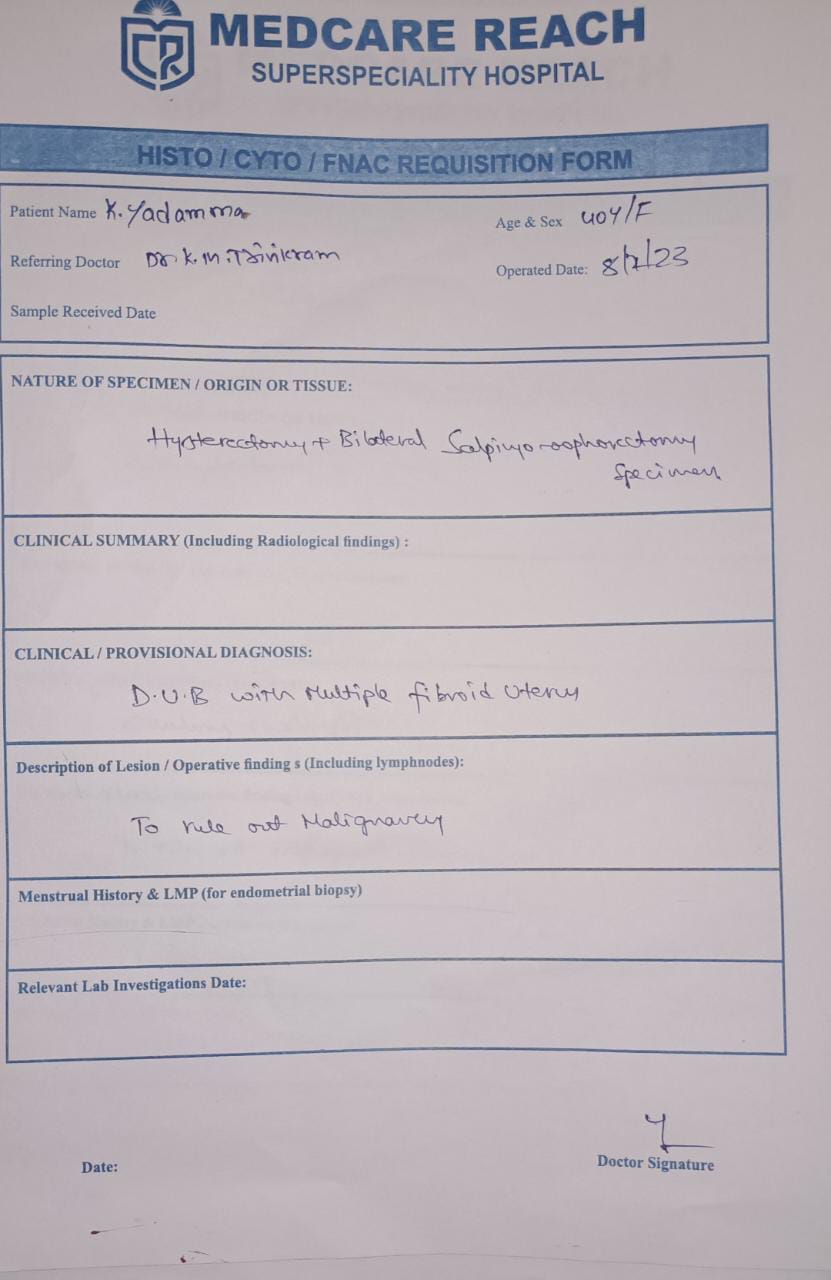 MEDCARE REACH
SUPERSPECIALITY HOSPITAL
HISTO / CYTO / FNAC REQUISITION FORM
Patient Name K. Yadamma
Age & Sex 40Y/F
Referring Doctor Dr. K. M. Trivikram
Operated Date: 8/7/23
Sample Received Date
NATURE OF SPECIMEN / ORIGIN OR TISSUE:
Hysterectomy + Bilateral Salpingo-oophorectomy
Specimen
CLINICAL SUMMARY (Including Radiological findings) :
CLINICAL / PROVISIONAL DIAGNOSIS:
D.U.B with Multiple fibroid Uterus
Description of Lesion / Operative finding s (Including lymphnodes):
To rule out Malignancy
Menstrual History & LMP (for endometrial biopsy)
Relevant Lab Investigations Date:
Date:
Doctor Signature